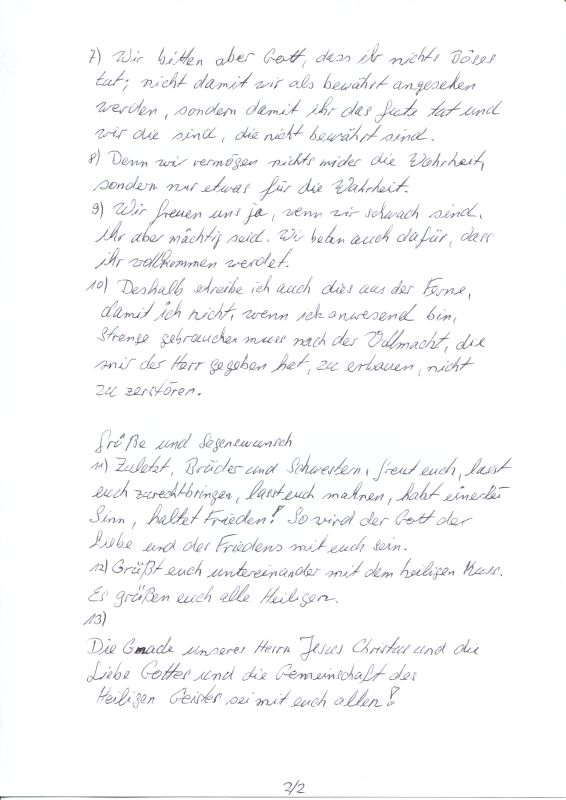 7) Wir bitten aber Gott, dass ihr nichts Böses
tut; nicht damit wir als bewährt angesehen
werden, sondern damit ihr das Gute tut und
wir die sind, die nicht bewährt sind.
8) Denn wir vermögen nichts wider die Wahrheit,
sondern nur etwas für die Wahrheit.
9) Wir freuen uns ja, wenn wir schwach sind,
ihr aber mächtig seid. Wir beten auch dafür, dass
ihr vollkommen werdet.
10) Deshalb schreibe ich auch dies aus der Ferne,
damit ich nicht, wenn ich anwesend bin,
Strenge gebrauchen muss nach der Vollmacht, die
mir der Herr gegeben hat, zu erbauen, nicht
zu zerstören.
Grüße und Segenswunsch
11) Zuletzt, Brüder und Schwestern, freut euch, lasst
euch zurechtbringen, lasst euch mahnen, habt einerlei
Sinn, haltet Frieden! So wird der Gott der
Liebe und des Friedens mit euch sein.
12) Grüßt euch untereinander mit dem heiligen Kuss.
Es grüßen euch alle Heiligen.
13)
Die Gnade unseres Herrn Jesus Christus und die
Liebe Gottes und die Gemeinschaft des
Heiligen Geistes sei mit euch allen!
2/2